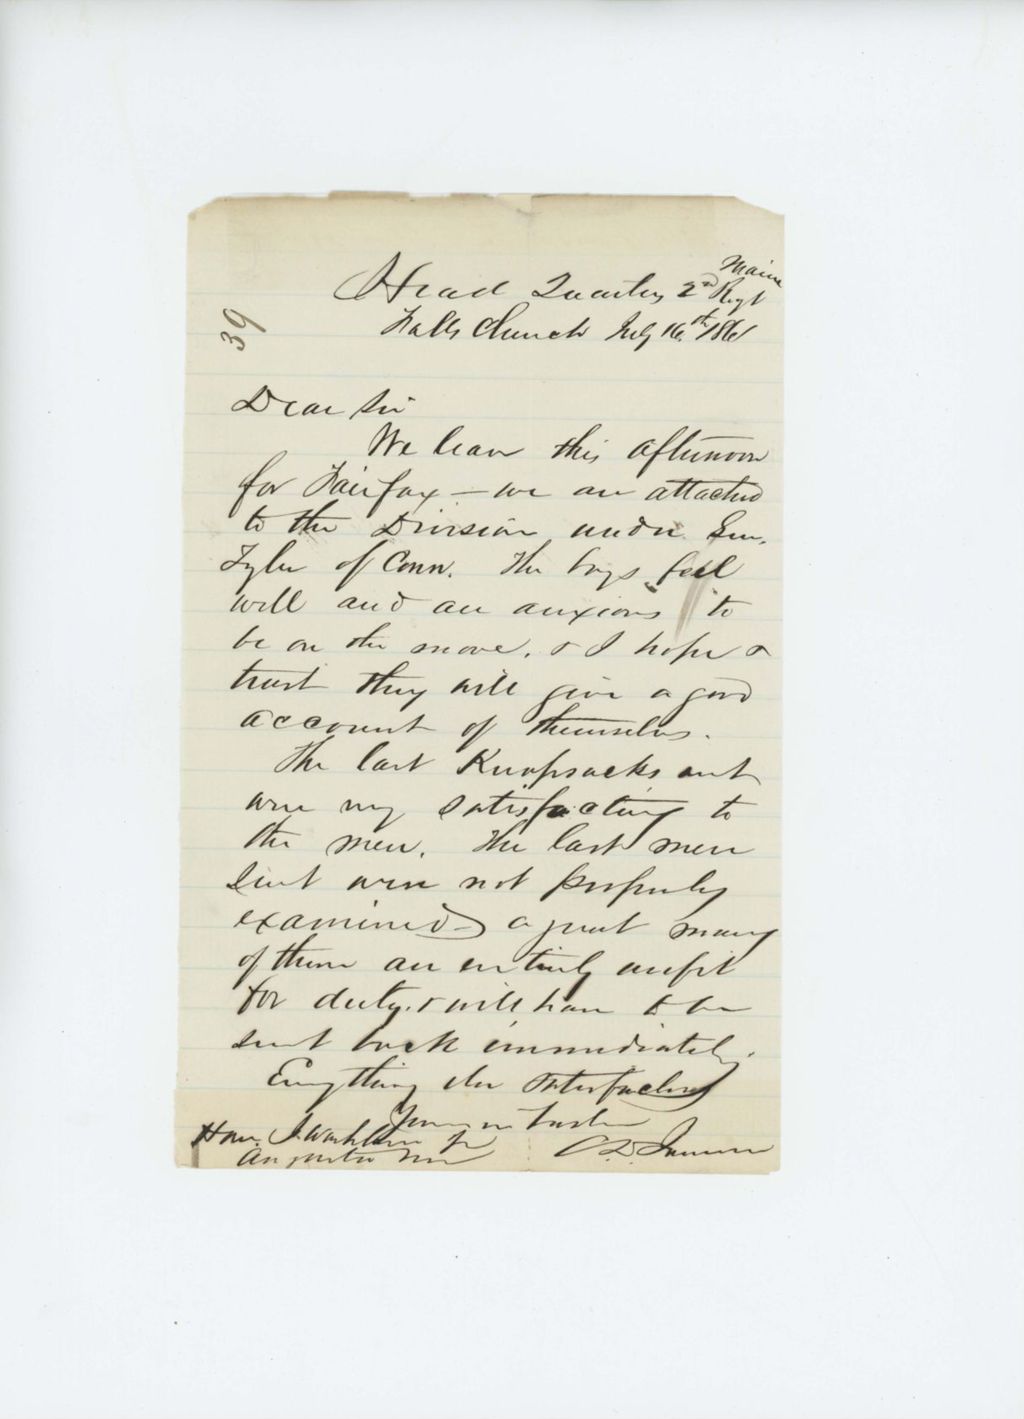 39
Head Quarters 2nd Maine Regt
Falls Church July 16th 1861
Dear Sir
We leave this afternoon
for Fairfax — we are attached
to the Division under Gen.
Tyler of Conn. The boys feel
well and are anxious to
be on the move. & I hope &
trust they will give a good
account of themselves.
The last Knapsacks sent
were very satisfactory to
the men. The last men
sent were not properly
examined — a great many
of them are entirely unfit
for duty. & will have to be
sent back immediately.
Everything else satisfactory
Yours in haste
C. D. Jameson
Hon. I. Washburn Jr
Augusta Me